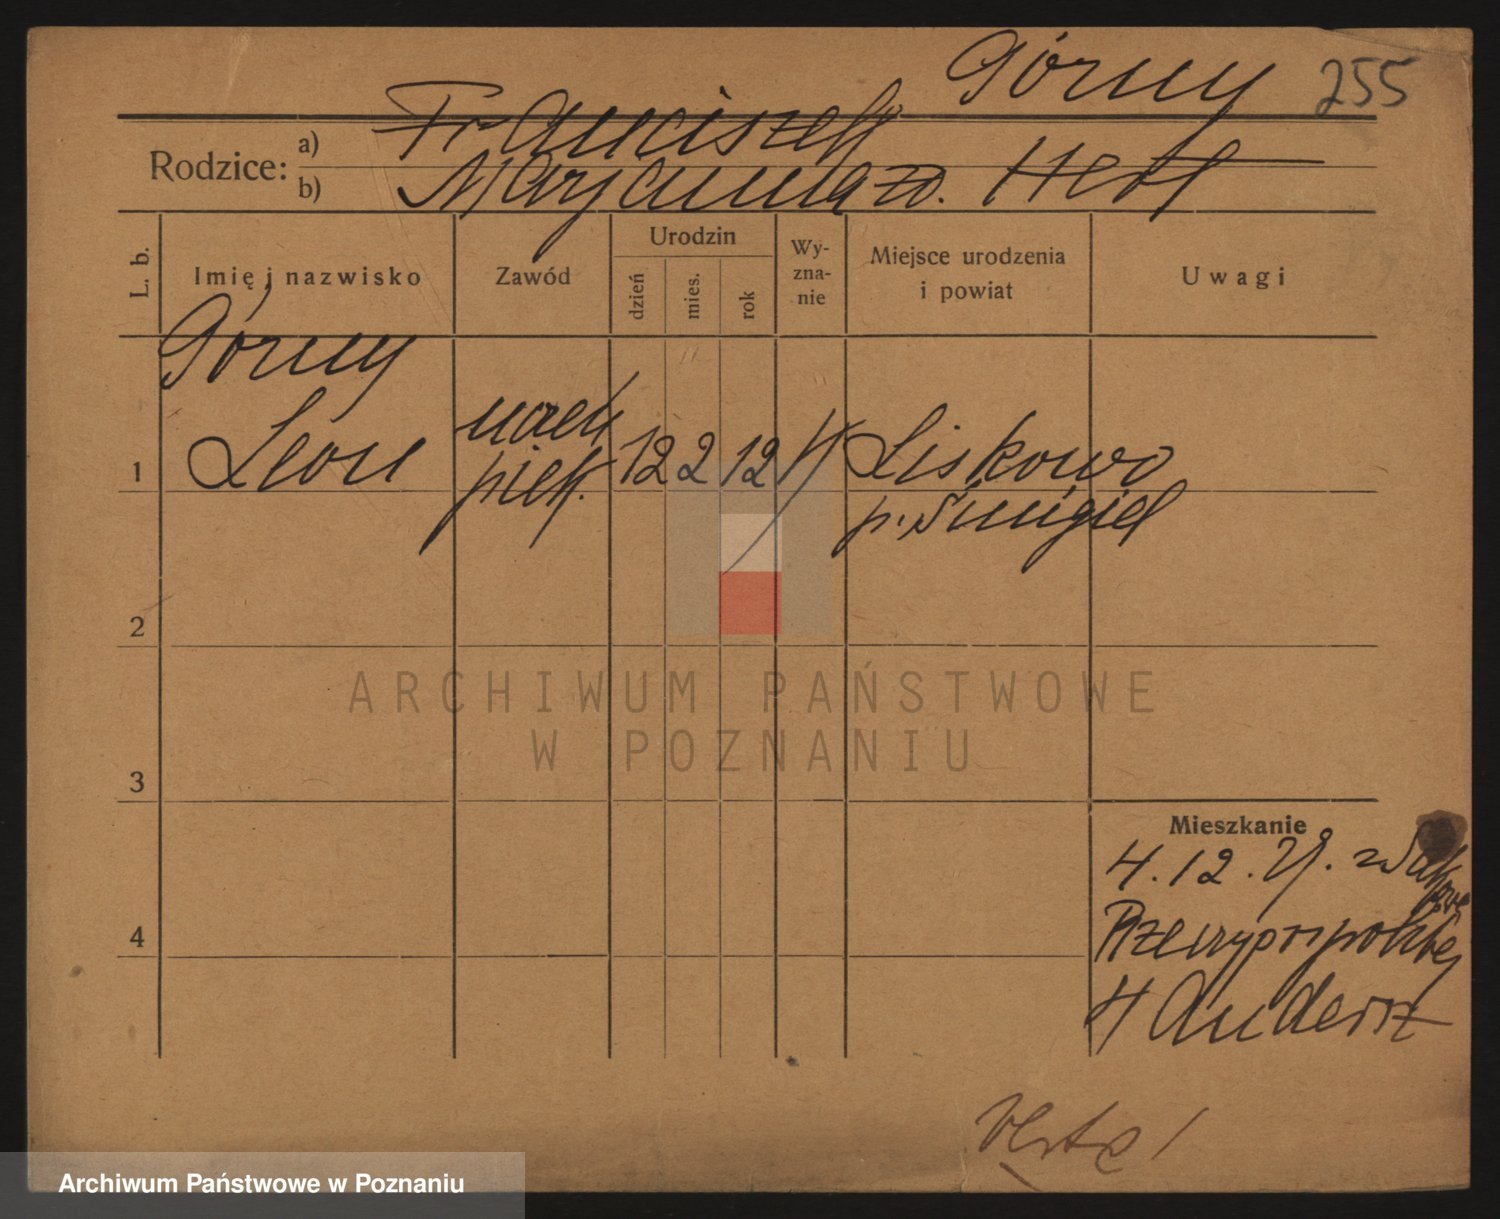 Górny 255
Rodzice: a) Franciszek
b) Marjanna zd. Hertl
L. b.
Imię i nazwisko
Zawód
Urodzin
dzień
mies.
rok
Wy-
zna-
nie
Miejsce urodzenia
i powiat
Uwagi
Górny
1 Leon
piek.
12 2 12
Liskowo
p. Śmigiel
2
3
4
Mieszkanie
4.12.29. z
Rzeczypospolitej
4 Andersz
ARCHIWUM PAŃSTWOWE
W POZNANIU
Archiwum Państwowe w Poznaniu